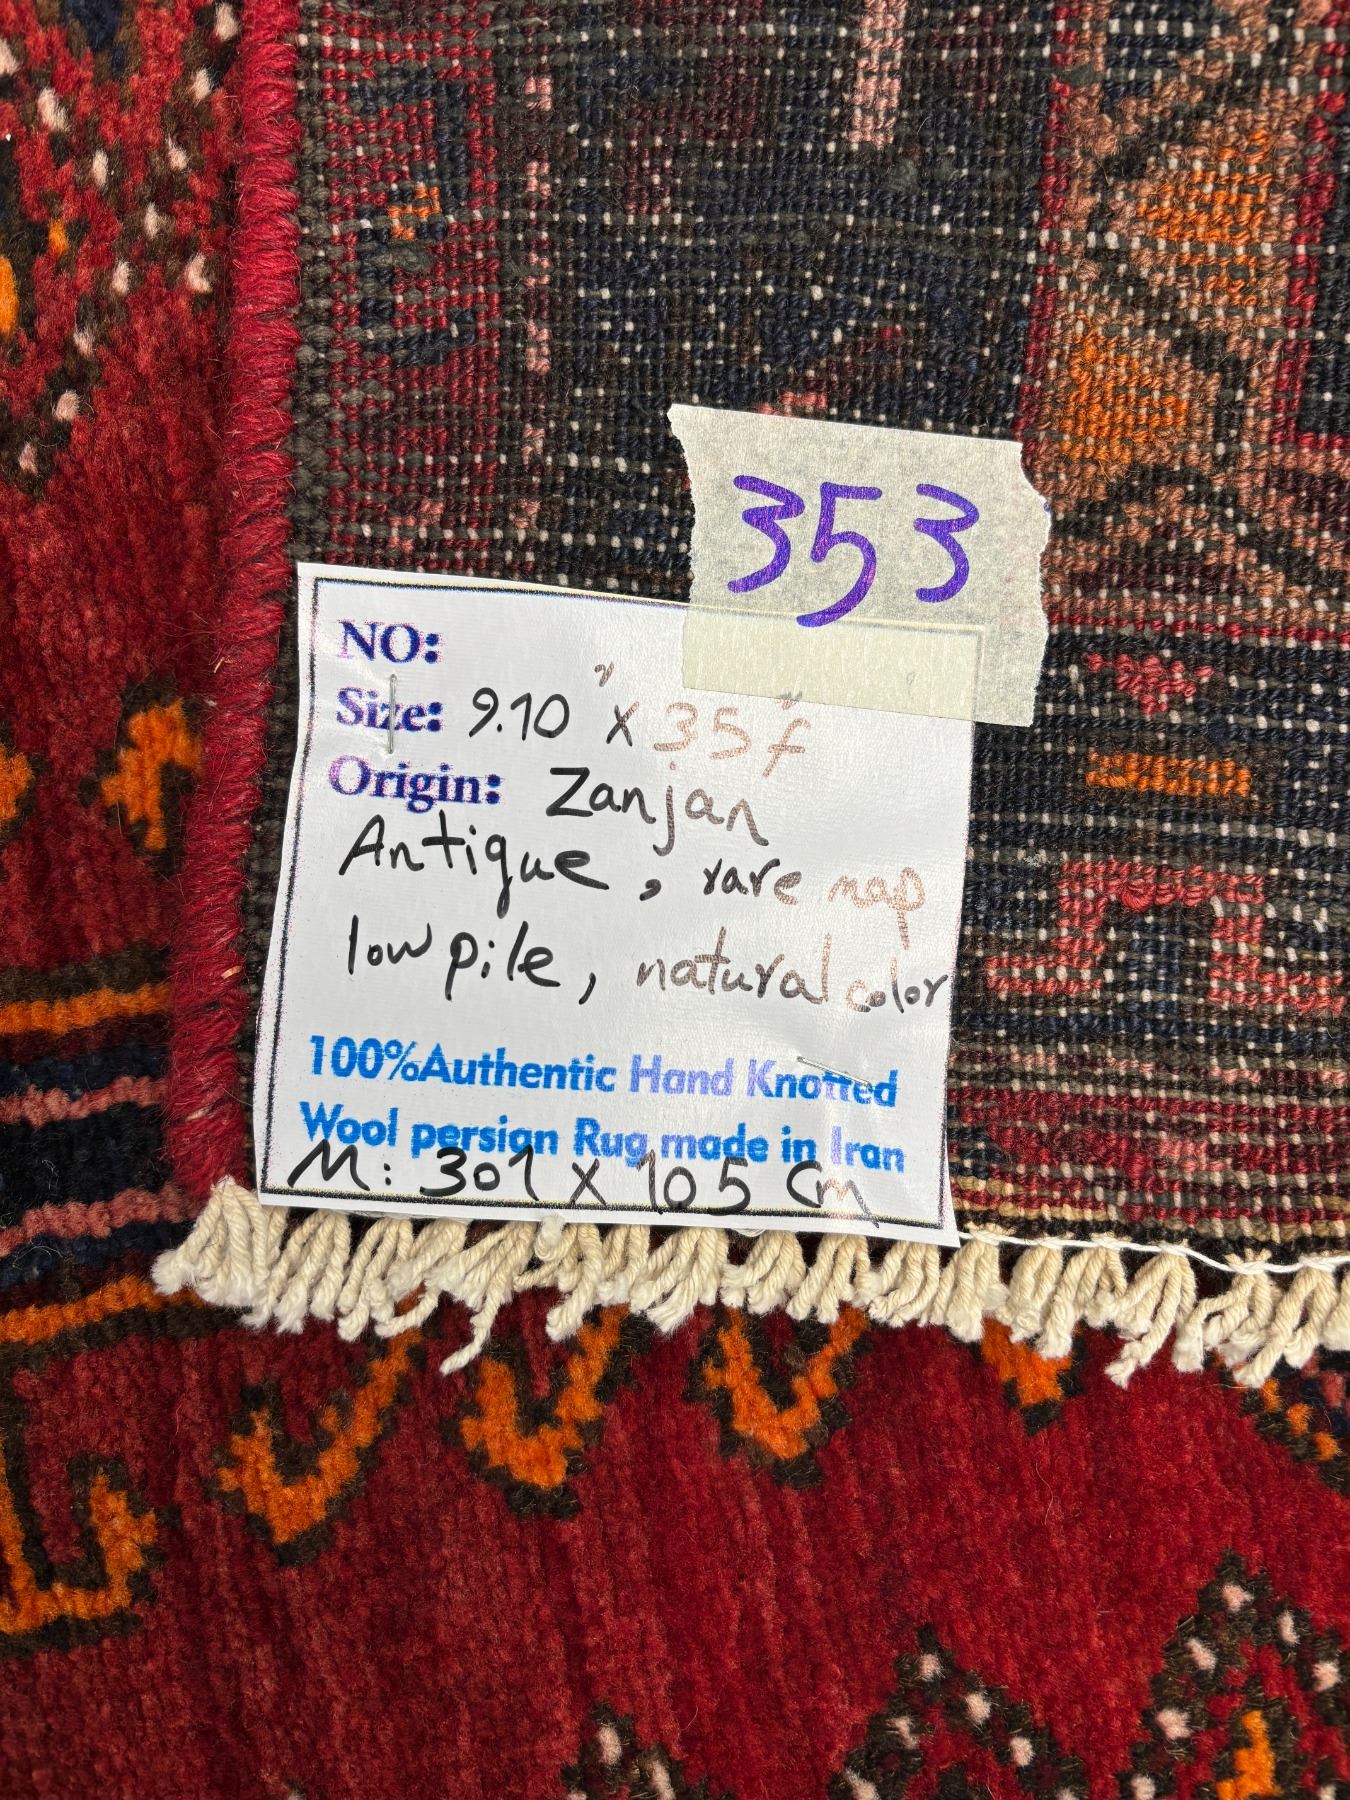 353
NO:
Size: 9.10" x 35" f
Origin: Zanjan
Antique, rare nap
low pile, natural color
100%Authentic Hand Knotted
Wool persian Rug made in Iran
M: 301 x 105 Cm